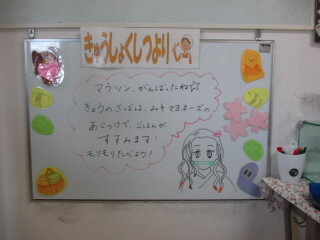 きゅうしょくしつより
マラソン、がんばったね☆
きょうのさばは、みそマヨネーズの
あじつけで、ごはんが
すすみます!
モリモリたべよう!